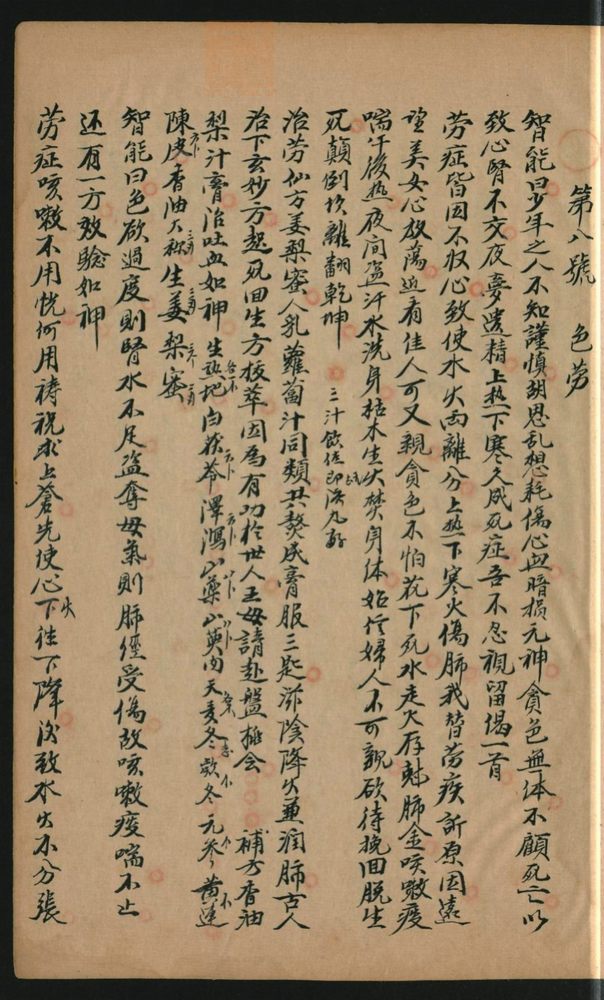 第八號 色劳
智能曰少年之人不知謹慎胡思乱想耗傷心血暗損元神貪色無体不顧死亡以
致心腎不交夜夢遺精上热下寒久成死症吾不忍視留偈一首
劳症皆因不収心致使水火両離分上热下寒火傷肺我替劳疾訴原因遠
望美女心放蕩近看佳人可又親貪色不怕花下死水走火存尅肺金咳嗽痰
喘午後热夜间盗汗水洗身枯木生火焚身体妊傷婦人不可親欲待挽回脱生
死顛倒坎離翻乾坤 三汁飲伍即済九好
治劳仙方姜梨蜜人乳蘿蔔汁同類共熬成膏服三匙滋陰降火兼润肺古人
治下玄妙方起死回生方抜萃因為有功於世人王母請赴盤桃会 補方香油
梨汁膏治吐血如神 生热地 白茯苓 澤瀉 山藥 山萸肉 天麦冬 欵冬 元参 黄連
陳皮 香油 生姜 梨 蜜
智能曰色欲過度則腎水不足盗奪母氣則肺經受傷故咳嗽痰喘不止
还有一方效驗如神
劳症咳嗽不用忧何用祷祝求上蒼先使心火下往下降後致水火不分張